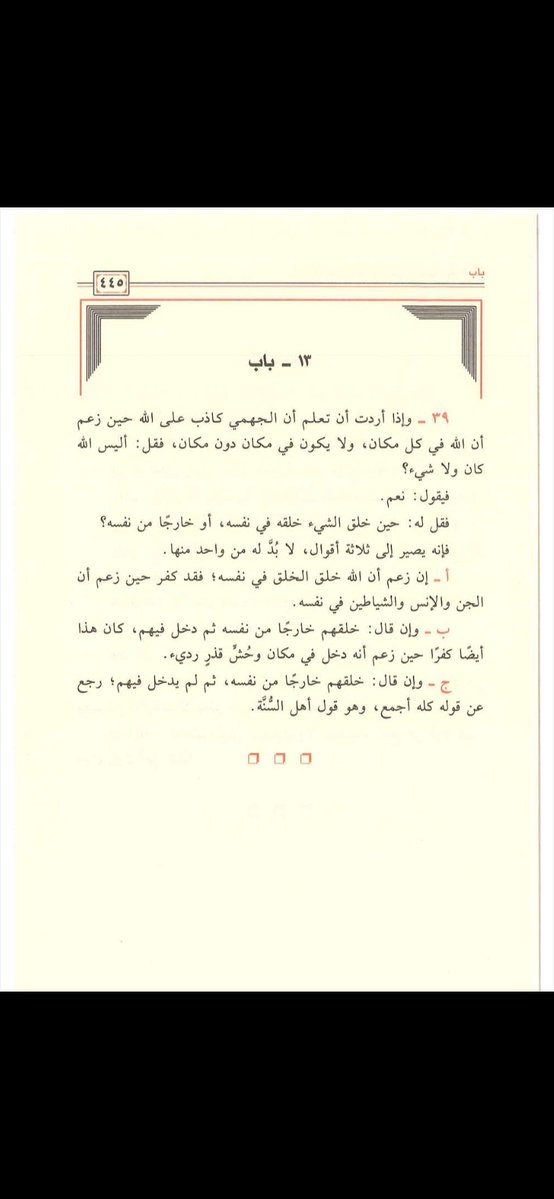 باب
٤٤٥
١٣ ـ باب
٣٩ ـ وإذا أردت أن تعلم أن الجهمي كاذب على الله حين زعم
أن الله في كل مكان، ولا يكون في مكان دون مكان، فقل: أليس الله
كان ولا شيء؟
فيقول: نعم.
فقل له: حين خلق الشيء خلقه في نفسه، أو خارجًا من نفسه؟
فإنه يصير إلى ثلاثة أقوال، لا بُدَّ له من واحد منها.
أ ـ إن زعم أن الله خلق الخلق في نفسه؛ فقد كفر حين زعم أن
الجن والإنس والشياطين في نفسه.
ب ـ وإن قال: خلقهم خارجًا من نفسه ثم دخل فيهم، كان هذا
أيضًا كفرًا حين زعم أنه دخل في مكان وحُشٍّ قذرٍ رديء.
ج ـ وإن قال: خلقهم خارجًا من نفسه، ثم لم يدخل فيهم؛ رجع
عن قوله كله أجمع، وهو قول أهل السُّنَّة.